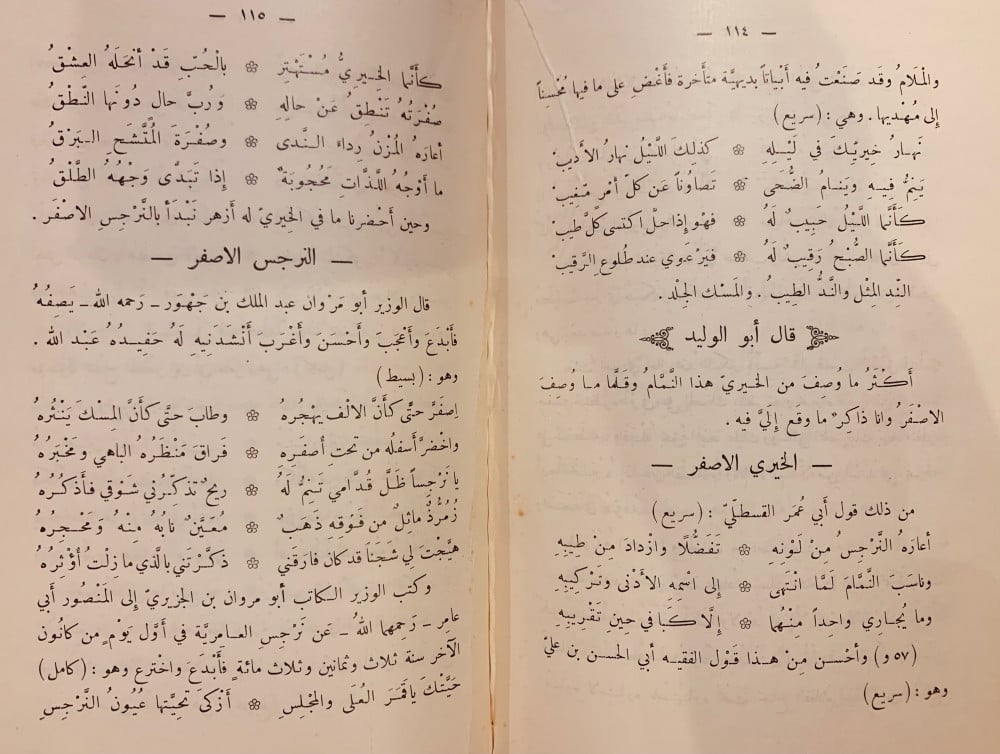 — ١١٤ —
والمَلامُ وقد صَنَعْتُ فيه أبياتاً بديهيَّة متأخرة فأغْضِ على ما فيها مُحْسِناً
إلى مُهْديها . وهي : (سريع)
نَهارُ خيرِيِّكَ في لَيْلِهِ ۞ كذلِكَ اللَّيْلُ نهارُ الأَديبْ
يَنِمُّ فيهِ وَيَنامُ الضُّحَى ۞ تَصاوُناً عَن كلِّ أمْرٍ مَعيبْ
كَأنَّما اللَّيْلُ حَبيبٌ لَهُ ۞ فهْو إذا حلَّ اكتسى كلَّ طيبْ
كَأنَّما الصُّبْحُ رَقيبٌ لَهُ ۞ فيَرْعَوي عند طُلوعِ الرَّقيبْ
النِّد المِثْل والنَّدُّ الطِيبُ . والمَسْك الجِلْد .
قال أبو الوليد
أكْثَرُ ما وُصِفَ من الخيريّ هذا النَّمَّامُ وقَلَّما مـا وُصِفَ
الاصْفَر وانا ذاكِرٌ ما وقع إلَيَّ فيه .
— الخيري الاصفر —
من ذلك قول أبي عُمر القسطليّ : (سريع)
أعارَهُ النَّرْجِسُ مِنْ لَوْنِهِ ۞ تَفَضُّلًا وازْدادَ مِنْ طِيبِهِ
وناسَبَ النَّمَّامَ لَمَّا انْتَهى ۞ إلى اسْمِهِ الأدْنى وتَرْكيبِهِ
وما يُجارِي واحِداً مِنْهُما ۞ إلَّا كَبا في حينِ تَقْريبِهِ
(٥٧ و) وأحْسن مِنْ هـذا قَوْل الفقيه أبي الحسن بن عليّ
وهو : (سريع)
— ١١٥ —
كأنَّما الخِـيرِيُّ مُسْتَهْتِر ۞ بالْحُبِّ قَدْ أنْحَلَهُ العِشْقُ
صُفْرَتُهُ تَنْطِقُ عَنْ حالِهِ ۞ وَرُبَّ حالٍ دُونَها النُّطْقُ
أعارَهُ المُزْنُ رِداءَ النَّدى ۞ وصُفْرَةَ المُتَّشَحِ البَرْقُ
ما أوْجُهُ اللَّذَّاتِ مَحْجُوبَةٌ ۞ إذا تَبَدَّى وَجْهُهُ الطَّلْقُ
وحين أحْضرنا ما في الخيريّ له أزهر نَبْدَأُ بالنَّرْجِس الاصْفَر .
— النرجس الاصفر —
قال الوزير أبو مَرْوان عبد الملك بن جَهْوَر ـ رَحمه الله ـ يَصِفُهُ
فأَبْدَعَ وأعْجَبَ وأحْسَنَ وأغْرَبَ أنْشَدَنِيهِ لَهُ حَفيدُهُ عَبْد الله .
وهو : (بسيط)
اِصفَرَّ حتَّى كَأنَّ الالْف يَهْجُرهُ ۞ وطابَ حتَّى كَأنَّ المِسْكَ يَنْثُرهُ
واخْضرَّ أسفلُه من تحتِ أصفَرِهِ ۞ فَراقَ مَنْظَرُه الباهي ومَخْبَرُهُ
يا نَرْجِساً ظَلَّ قُدَّامي تَنِمُّ لَهُ ۞ ريحٌ تذكِّرني شَوْقي فأذكُرُهُ
زُمُرُّذٌ ماثِلٌ من فَوْقِهِ ذَهَبٌ ۞ مُعَيَّنٌ نابُهُ مِنْهُ وَمَحْجِرُهُ
هَيَّجْتَ لي شَجَناً قد كان فارَقني ۞ ذكَّرْتَني بالَّذي ما زِلْتُ اُوْثِرُهُ
وكتب الوزير الكاتب أبو مروان بن الجزيريّ إلى المَنْصُور أبي
عامِر ـ رَحِمها اللهُ ـ عَن نَرْجِس العـامِريَّة في أوَّل يَوْمٍ من كانُون
الآخر سنة ثلاث وثمانين وثلاث مائةٍ فأبْدَعَ واخترع وهو : (كامل)
حَيَّتْكَ يا قَمَرَ العُلى والمَجْلِسِ ۞ أزْكى تحِيَّتِها عُيُونُ النَّرْجِسِ